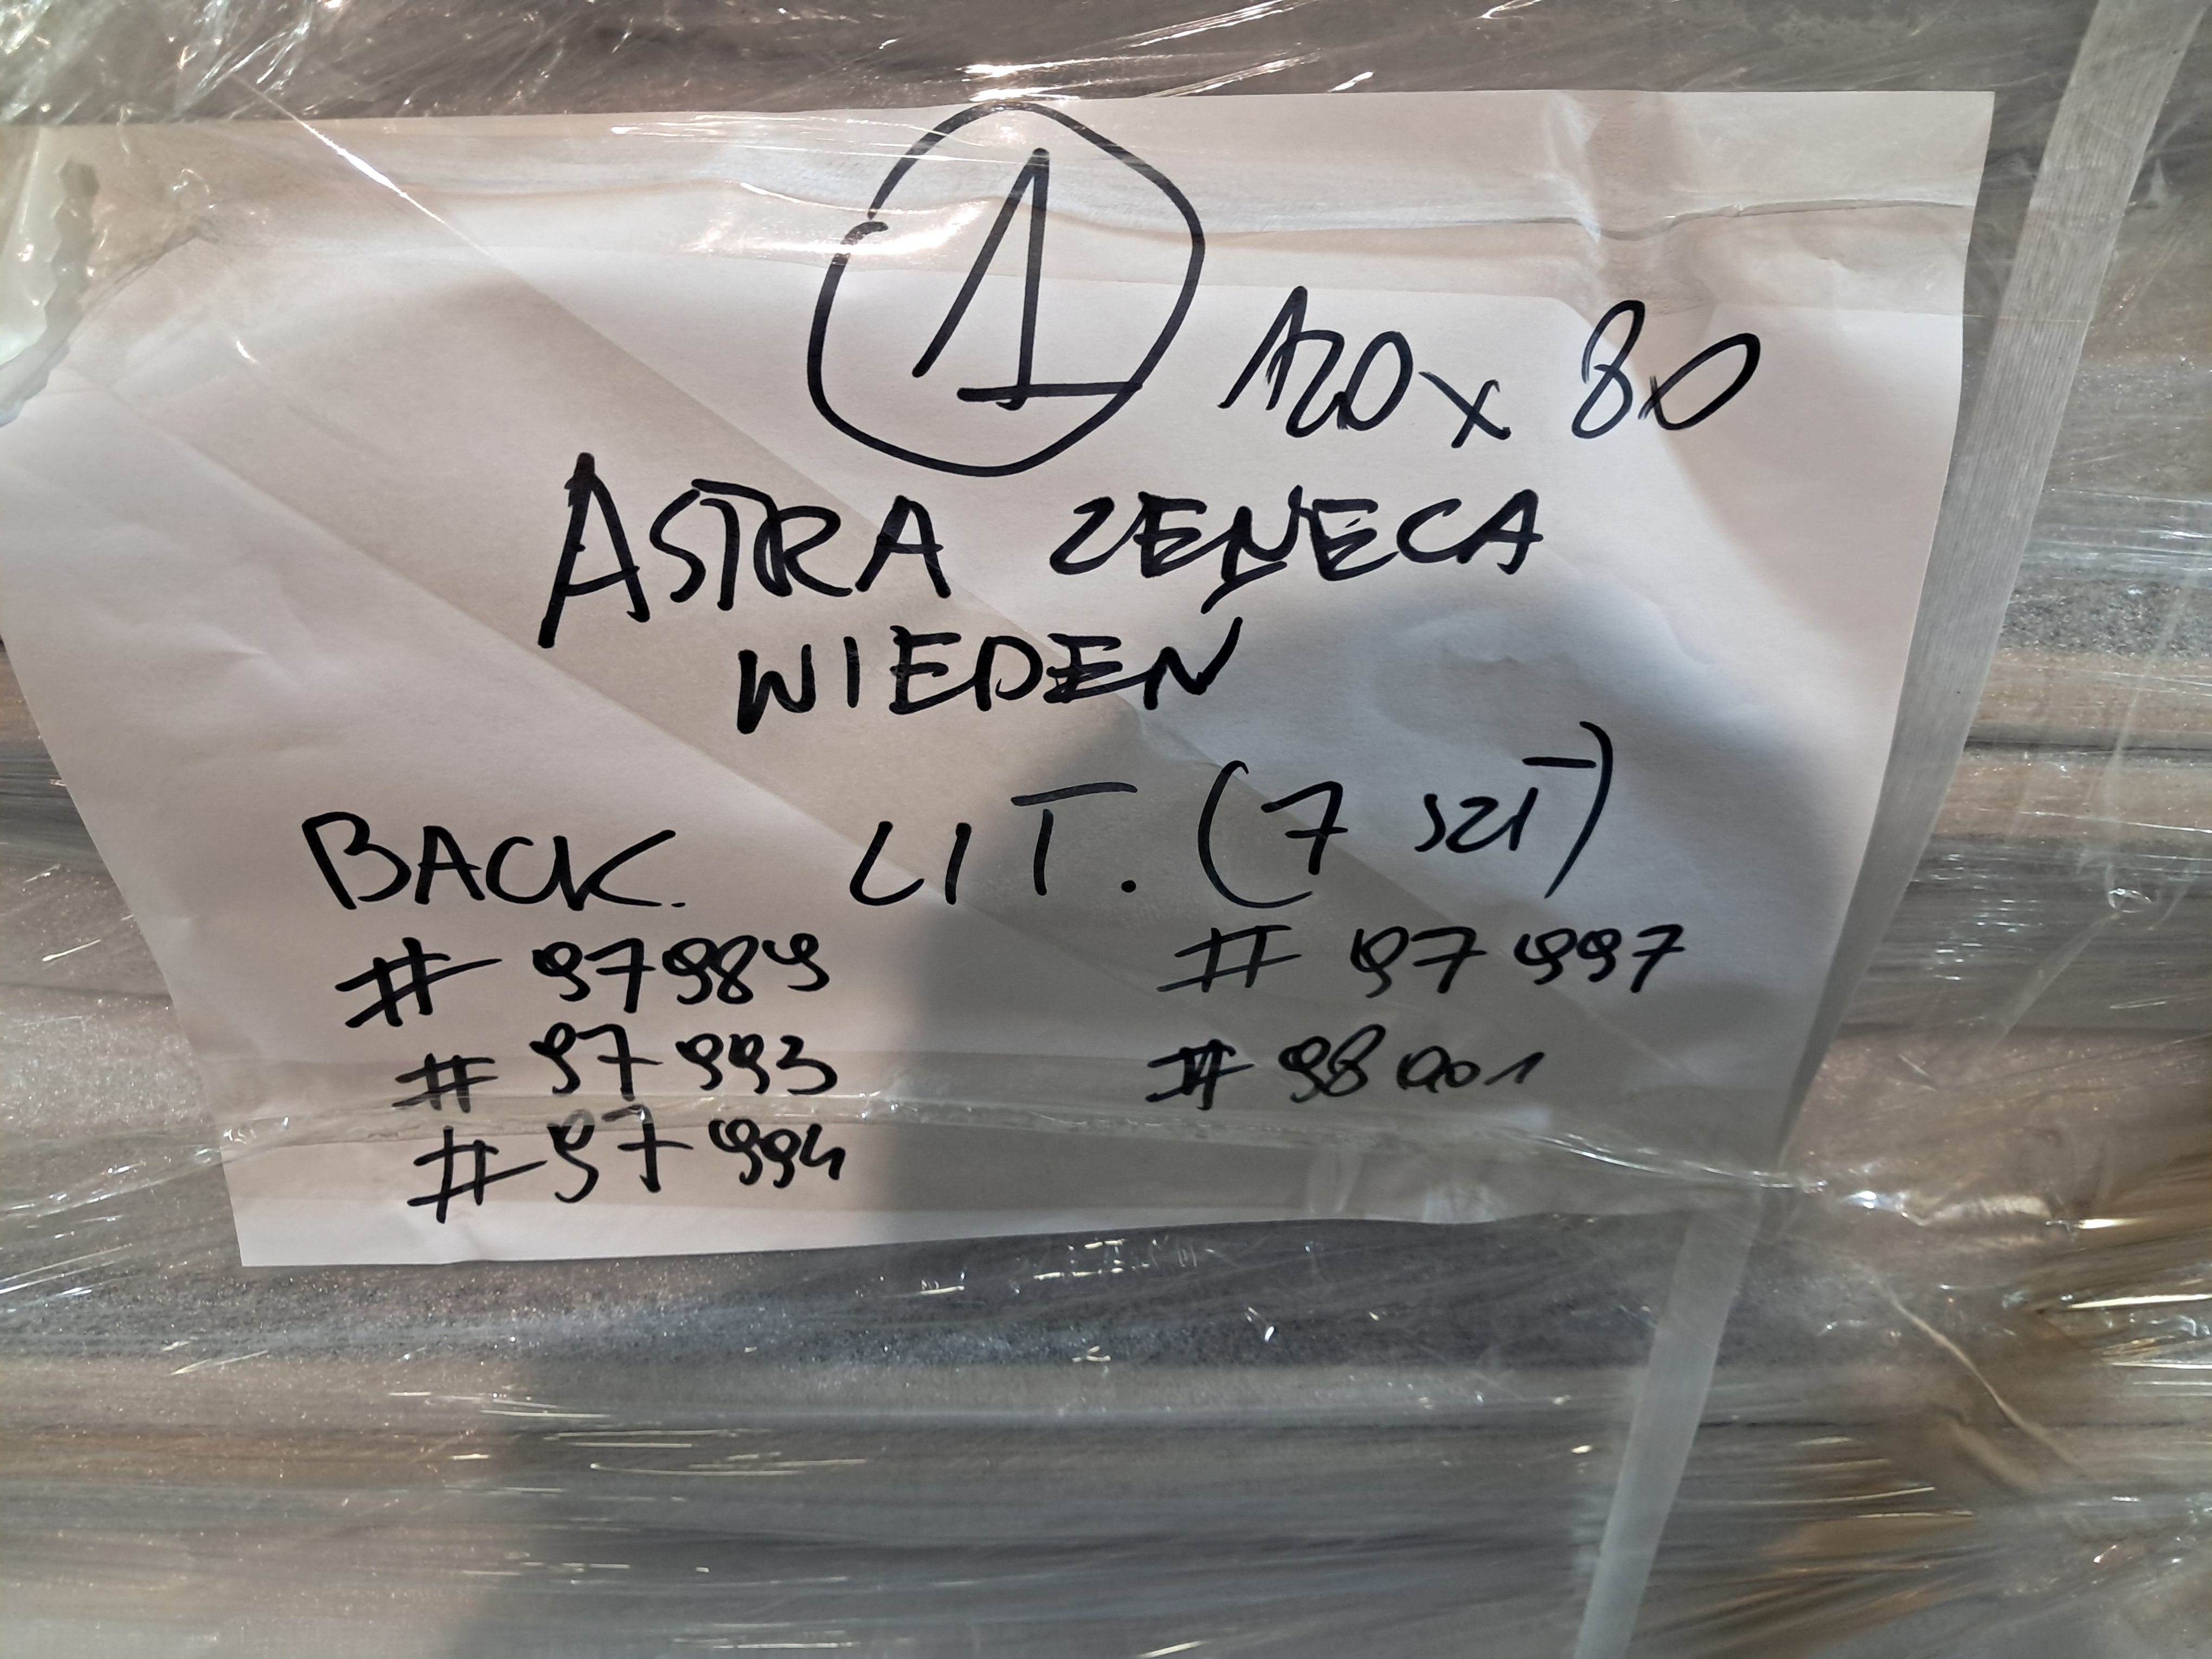 1
120 x 80
ASTRA ZENECA
WIEDEN
BACK. LIT. (7 SZT)
# 97989
# 97993
# 97994
# 97997
# 98001